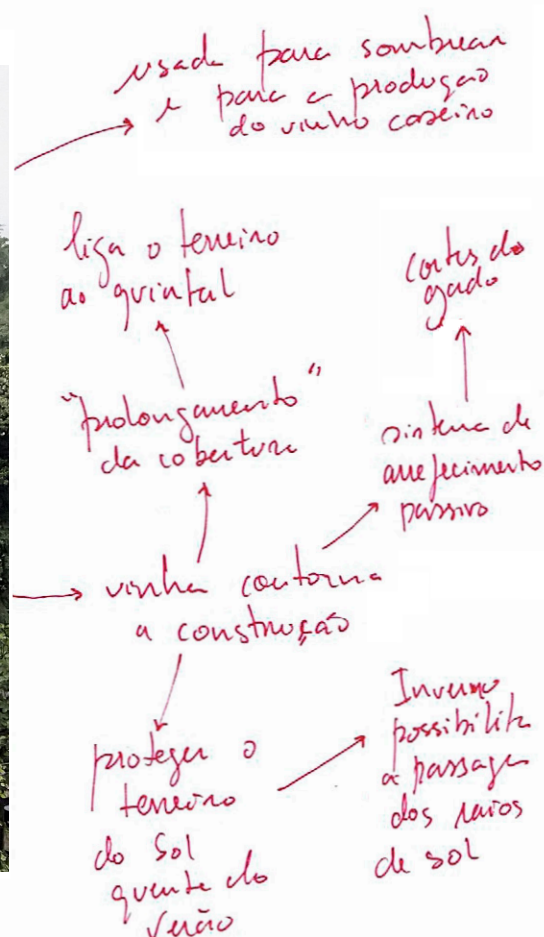 usada para sombrear
e para a produção
do vinho caseiro
liga o terreiro
ao quintal
cortes do
gado
"prolongamento"
da cobertura
sistema de
arrefecimento
passivo
vinha contorna
a construção
proteger o
terreiro
do Sol
quente do
Verão
Inverno
possibilita
a passagem
dos raios
de sol